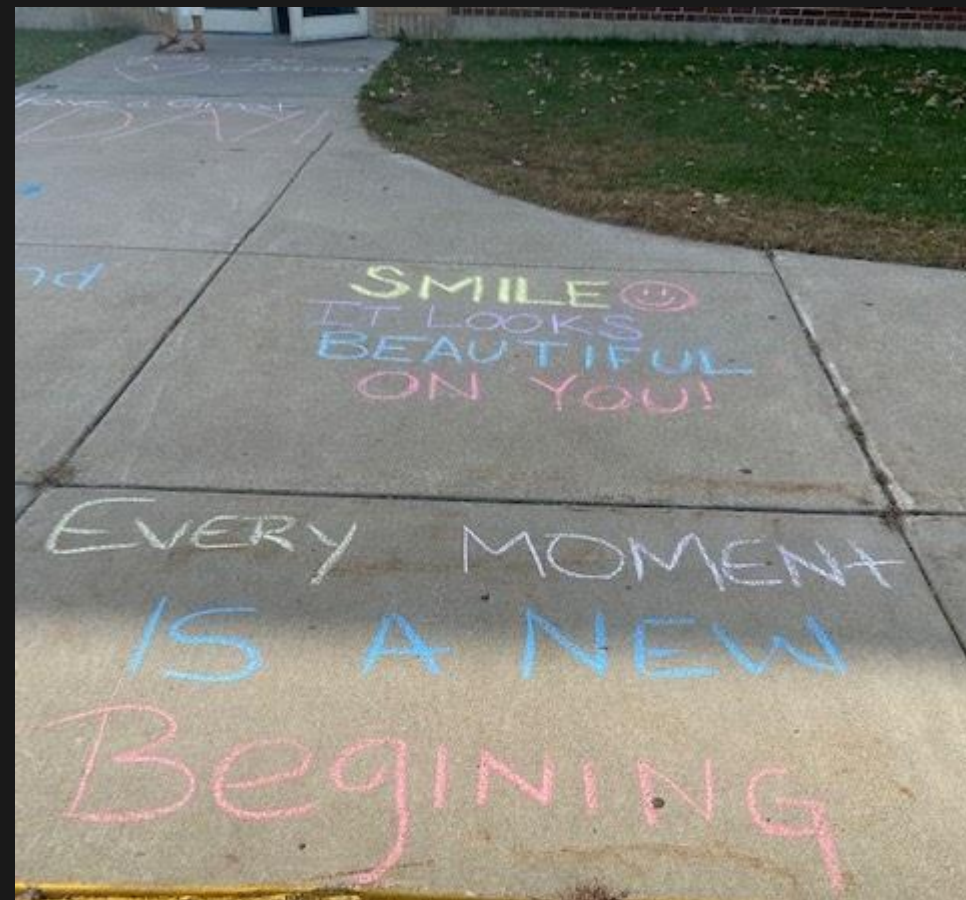 Have a Great
DAY!
SMILE
IT LOOKS
BEAUTIFUL
ON YOU!
EVERY MOMENt
IS A NEW
BegINING